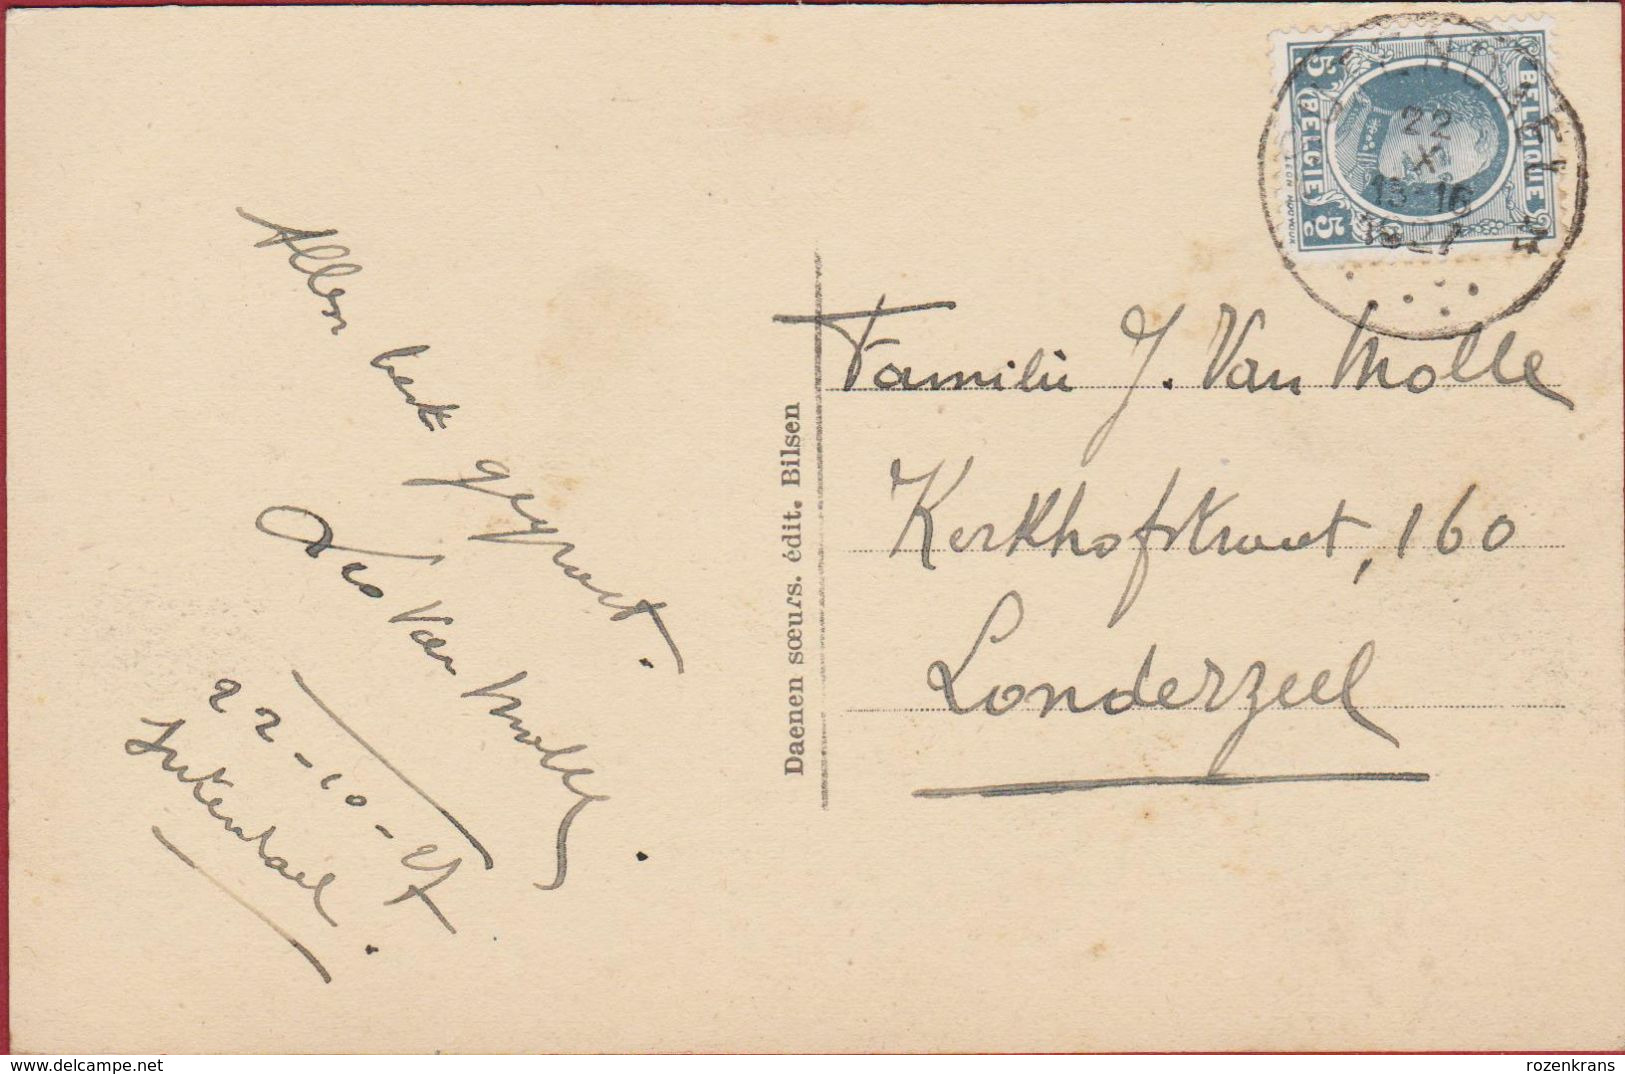 Allen best gegroet.
Van Molle.
22-10-27
Daenen sœurs. édit. Bilsen
BELGIQUE
BELGIE
5 5 c
22
X
13-16
1927
Familie J. Van Molle
Kerkhofstraat, 160
Londerzeel
delcampe.net
rozenkrans